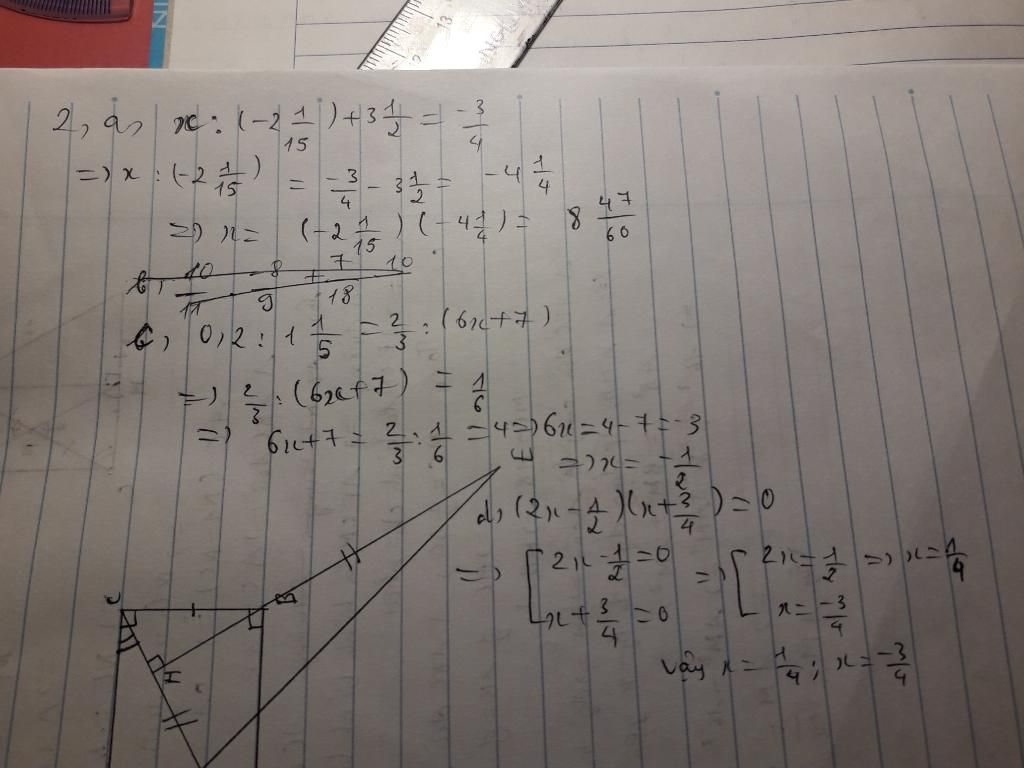 2, a, x : (-2 1/15) + 3 1/2 = -3/4
=> x : (-2 1/15) = -3/4 - 3 1/2 = -4 1/4
=> x = (-2 1/15) (-4 1/4) = 8 47/60
c, 0,2 : 1 1/5 = 2/3 : (6x+7)
=> 2/3 : (6x+7) = 1/6
=> 6x+7 = 2/3 : 1/6 = 4 => 6x = 4-7 = -3
=> x = -1/2
d, (2x - 1/2)(x + 3/4) = 0
=> [ 2x - 1/2 = 0 => [ 2x = 1/2 => x = 1/4
x + 3/4 = 0 x = -3/4
Vậy x = 1/4 ; x = -3/4
E
C
B
H